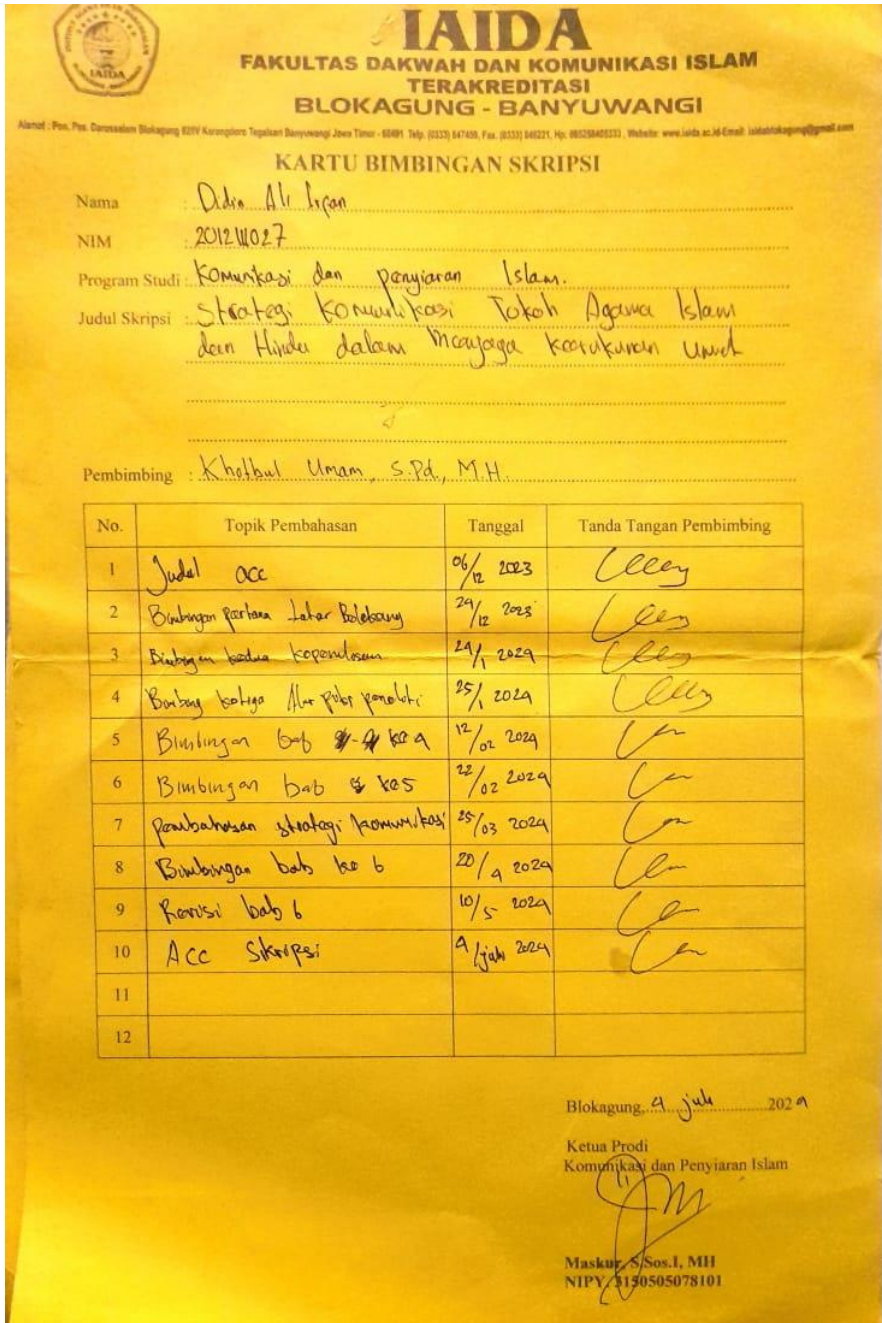 IAIDA
FAKULTAS DAKWAH DAN KOMUNIKASI ISLAM
TERAKREDITASI
BLOKAGUNG - BANYUWANGI
Alamat : Pon. Pes. Darussalam Blokagung 02/IV Karangdoro Tegalsari Banyuwangi Jawa Timur - 68491 Telp. (0333) 847459, Fax. (0333) 846221, Hp: 085258405333 , Website: www.iaida.ac.id-Email: iaidablokagung@gmail.com
KARTU BIMBINGAN SKRIPSI
Nama : Didin Ali
NIM : 2012111027
Program Studi : Komunikasi dan penyiaran Islam.
Judul Skripsi : Strategi Komunikasi Tokoh Agama Islam
dan Hindu dalam Menjaga Kerukunan Umat
Pembimbing : Khotbul Umam, S.Pd., M.H.
No. Topik Pembahasan Tanggal Tanda Tangan Pembimbing
1 Judul acc 06/12 2023
2 Bimbingan pertama 29/12 2023
3 Bimbingan kedua kepenulisan 24/1 2024
4 ketiga Alur pikir peneliti 25/1 2024
5 Bimbingan bab ke 4 12/02 2024
6 Bimbingan bab ke 5 22/02 2024
7 pembahasan strategi komunikasi 25/03 2024
8 Bimbingan bab ke 6 20/4 2024
9 Revisi bab 6 10/5 2024
10 Acc Skripsi 4/juli 2024
11
12
Blokagung, 4 juli 2024
Ketua Prodi
Komunikasi dan Penyiaran Islam
Maskur, S.Sos.I, MH
NIPY. 3150505078101